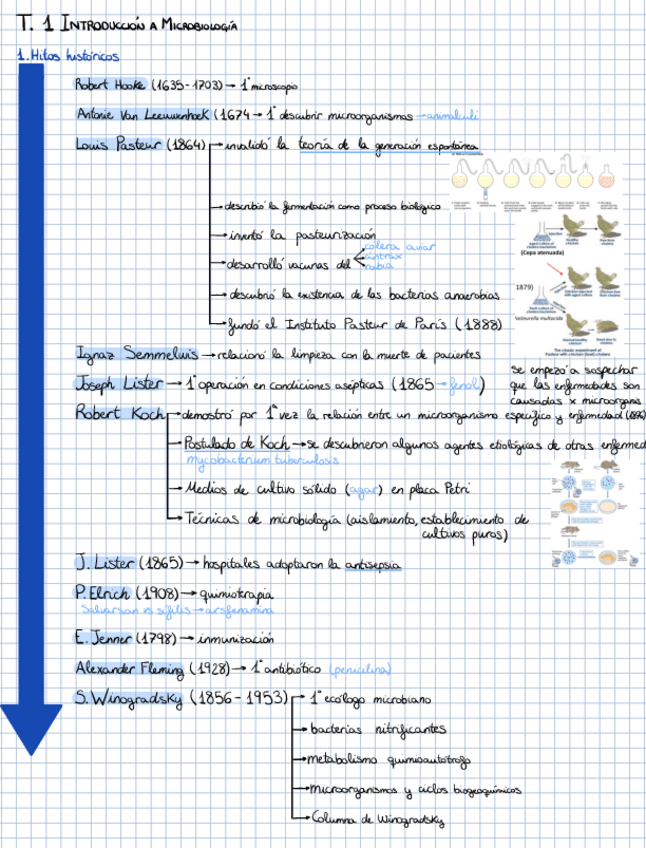 T. 1 INTRODUCCIÓN A MICROBIOLOGÍA
1. Hitos históricos
Robert Hooke (1635-1703) → 1º microscopio
Antonie Van Leeuwenhoek (1674 → 1º descubrir microorganismos → animaliculi
Louis Pasteur (1864) → invalidó la teoría de la generación espontánea
→ describió la fermentación como proceso biológico
→ inventó la pasteurización
→ desarrolló vacunas del
cólera aviar
ántrax
rabia
(Cepa atenuada)
→ descubrió la existencia de las bacterias anaerobias
1879)
→ fundó el Instituto Pasteur de París (1888)
Ignaz Semmelwis → relacionó la limpieza con la muerte de pacientes
Joseph Lister → 1ª operación en condiciones asépticas (1865 → fenol)
se empezó a sospechar
que las enfermedades son
causadas x microorgans
Robert Koch → demostró por 1ª vez la relación entre un microorganismo específico y enfermedad
→ Postulado de Koch → se descubrieron algunos agentes etiológicos de otras enfermed
mycobacterium tuberculosis
→ Medios de cultivo sólido (agar) en placa Petri
→ Técnicas de microbiología (aislamiento, establecimiento de
cultivos puros)
J. Lister (1865) → hospitales adoptaron la antisepsia
P. Elrich (1908) → quimioterapia
Salvarsan vs sífilis → arsfenamina
E. Jenner (1798) → inmunización
Alexander Fleming (1928) → 1º antibiótico (penicilina)
S. Winogradsky (1856-1953) → 1º ecólogo microbiano
→ bacterias nitrificantes
→ metabolismo quimioautótrofo
→ microorganismos y ciclos biogeoquímicos
→ Columna de Winogradsky